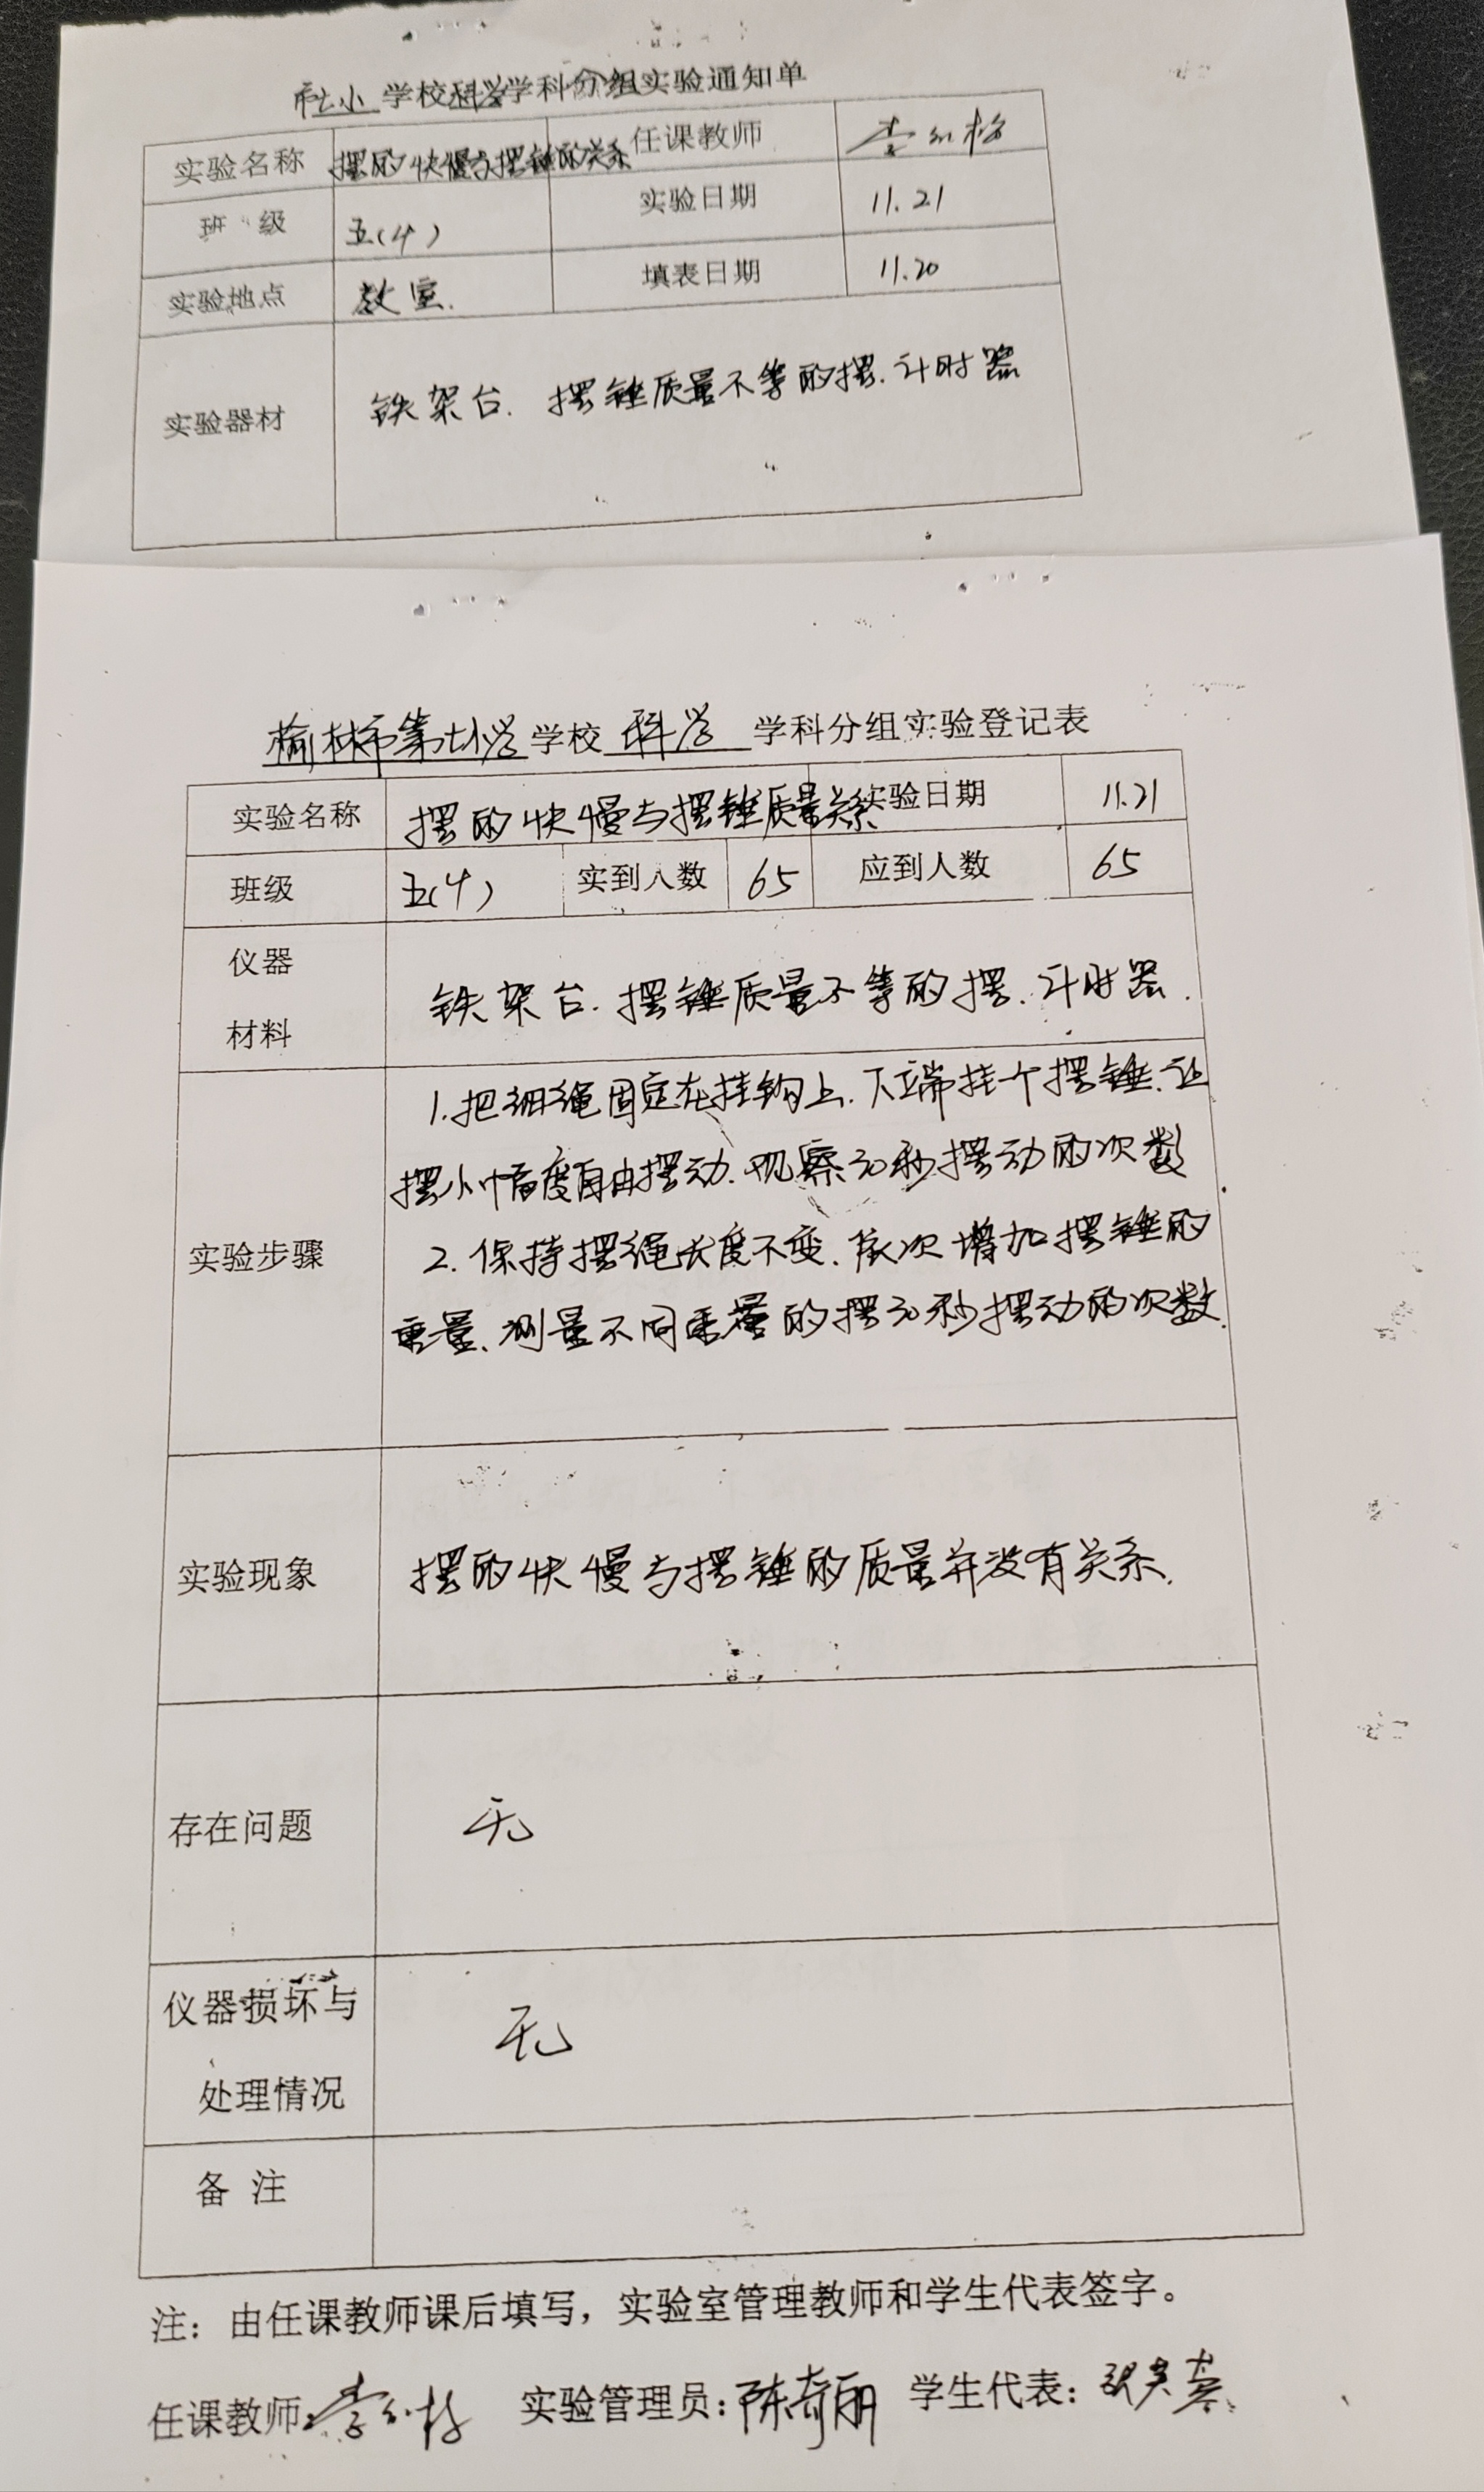 小 学校科学学科分组实验通知单
实验名称 摆的快慢与摆锤的关系 任课教师
班 级 五(4) 实验日期 11.21
实验地点 教室. 填表日期 11.20
实验器材 铁架台. 摆锤质量不等的摆. 计时器
榆林市第 小学 学校 科学 学科分组实验登记表
实验名称 摆的快慢与摆锤质量关系 实验日期 11.21
班级 五(4) 实到人数 65 应到人数 65
仪器
材料
铁架台. 摆锤质量不等的摆. 计时器.
1.把细绳固定在挂钩上. 下端挂个摆锤. 让
摆小幅度自由摆动. 观察30秒摆动的次数
实验步骤
2. 保持摆绳长度不变. 依次增加摆锤的
重量. 测量不同重量的摆30秒摆动的次数.
实验现象 摆的快慢与摆锤的质量并没有关系.
存在问题 无
仪器损坏与
处理情况
无
备 注
注：由任课教师课后填写，实验室管理教师和学生代表签字。
任课教师: 实验管理员: 陈奇丽 学生代表: